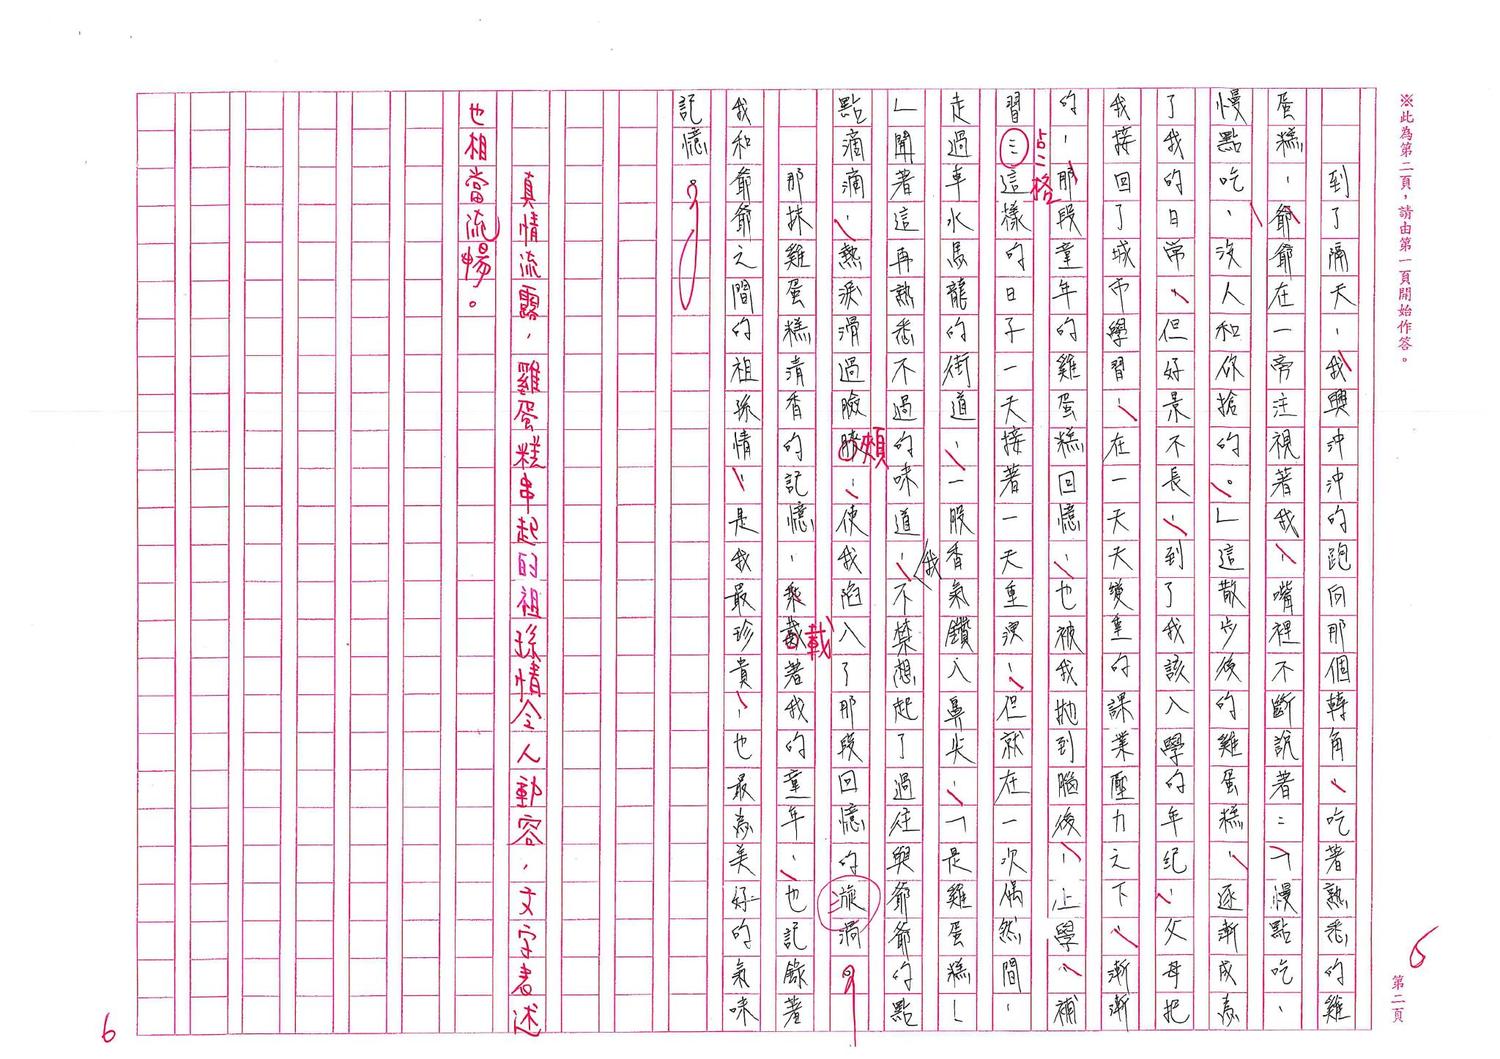 ※此為第二頁，請由第一頁開始作答。
到了隔天，我興沖沖的跑向那個轉角，吃著熟悉的雞
蛋糕，爺爺在一旁注視著我，嘴裡不斷說著：「慢點吃，
慢點吃，沒人和你搶的。」這散步後的雞蛋糕，逐漸成為
了我的日常，但好景不長，到了我該入學的年紀，父母把
我接回了城市學習，在一天天變重的課業壓力之下，漸漸
的，那段童年的雞蛋糕回憶，也被我拋到腦後，上學，補
占二格
習…這樣的日子一天接著一天重複，但就在一次偶然間，
走過車水馬龍的街道，一股香氣鑽入鼻尖，「是雞蛋糕！
我
」聞著這再熟悉不過的味道，不禁想起了過往與爺爺的點
頰
點滴滴，熱淚滑過臉，使我陷入了那段回憶的漩渦。
載
那抹雞蛋糕清香的記憶，乘著我的童年，也記錄著
我和爺爺之間的祖孫情，是我最珍貴，也最為美好的氣味
記憶。
真情流露，雞蛋糕串起的祖孫情令人動容，文字書述
也相當流暢。
5
第二頁
6